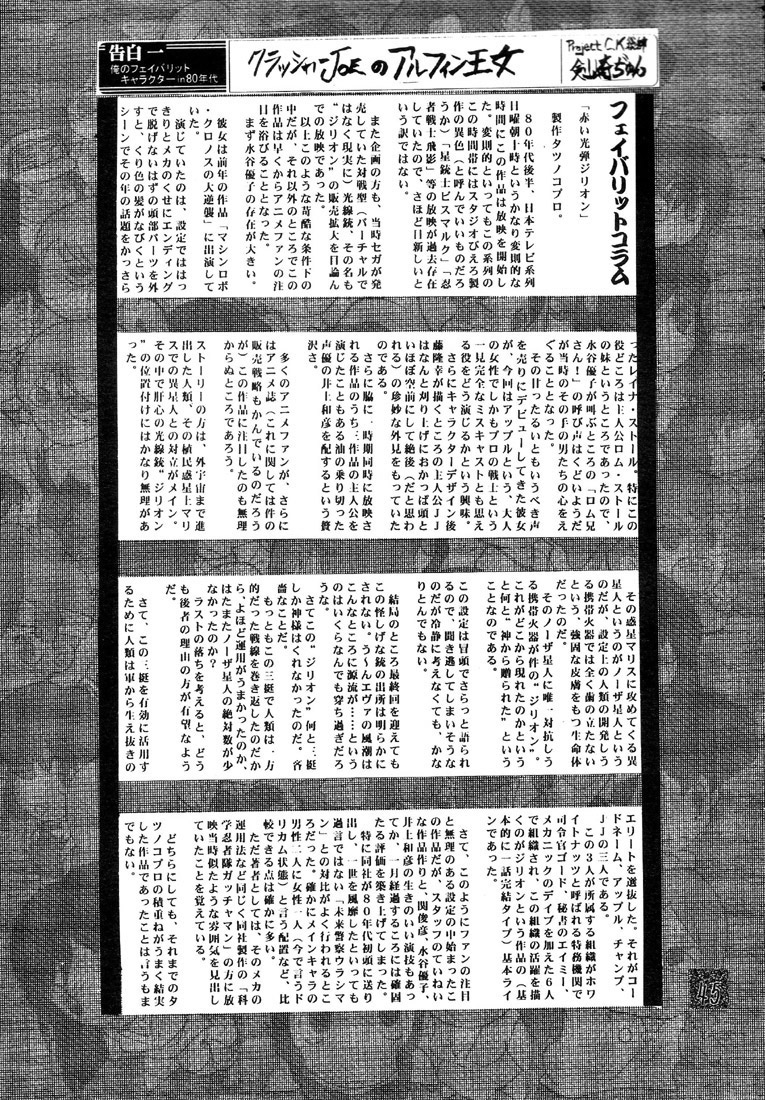 告白一
俺のフェイバリット
キャラクター in 80年代
クラッシャーJOEのアルフィン王女
Project C.K
フェイバリットコラム
「赤い光弾ジリオン」
製作タツノコプロ。
80年代後半、日本テレビ系列
日曜朝十時というかなり変則的な
時間にこの作品は放映を開始し
た。変則的といってもこの系列の
この時間帯にはスタジオぴえろ製
作の異色(と呼んでいいものだろ
うか)「星銃士ビスマルク」「忍
者戦士飛影」等の放映が過去存在
していたので、さほど目新しいと
いう訳ではない。
また企画の方も、当時セガが発
売していた対戦型(バーチャルで
はなく現実に)光線銃、その名も
“ジリオン”の販売拡大を目論ん
での放映であった。
以上このような苛酷な条件下の
中だが、それ以外のところでこの
作品は早くからアニメファンの注
目を浴びることとなった。
まず水谷優子の存在が大きい。
彼女は前年の作品「マシンロボ
・クロノスの大逆襲」に出演して
いた。
演じていたのは、設定でははっ
きりとメカのくせにエンディング
で脱げないはずの頭部パーツを外
すと、くり色の髪がなびくという
シーンでその年の話題をかっさら
ったレイナ・ストール。特にこの
役どころは主人公ロム・ストール
の妹というところであったので、
水谷優子が叫ぶところの「ロム兄
さん!」の呼び声はくどいようだ
が当時のその手の男たちの心をえ
ぐることとなった。
その甘ったるいともいうべき声
を売りにデビューしてきた彼女
が、今回はアップルという、大人
の女性でしかもプロの戦士という
一見完全なミスキャストとも思え
る役をどう演じるかという興味。
さらにキャラクターデザイン後
藤隆幸が描くところの主人公JJ
はなんと刈り上げにおかっぱ頭と
いうほぼ空前にして絶後(だと思わ
れる)の珍妙な外見をもっていた
のである。
さらに脇に一時期同時に放映さ
れる作品のうち三作品の主人公を
演じたこともある油の乗り切った
声優の井上和彦を配するという贅
沢さ。
多くのアニメファンが、さらに
はアニメ誌(これに関しては件の
販売戦略もかんでいるのだろう
が)この作品に注目したのも無理
からぬところであろう。
ストーリーの方は、外宇宙まで進
出した人類、その植民惑星上マリ
スでの異星人との対立がメイン。
その中で肝心の光線銃“ジリオン
”の位置付けにはかなり無理があ
った。
その惑星マリスに攻めてくる異
星人というのがノーザ星人という
のだが、設定上の人類の開発しう
る携帯火器では全く歯の立たない
という、強固な皮膚をもつ生命体
だったのだ。
そのノーザ星人に唯一対抗しう
る携帯火器が件の“ジリオン”。
これがどこから現れたのかという
と何と“神から贈られた”という
ことなのである。
この設定は冒頭でさらっと語られ
るので、聞き逃してしまいそうな
のだが冷静に考えなくても、かな
りとんでもない。
結局のところ最終回を迎えても
この怪しげな銃の出所は明らかに
されない。う~んエヴァの風潮は
こんなところに源流が……という
のはいくらなんでも穿ち過ぎだろ
うな。
さてこの“ジリオン”何と三挺
しか神様はくれなかったのだ。吝
嗇なことだ。
もっともこの三挺で人類は一方
的だった戦線を巻き返したのだか
ら、よほど運用がうまかったのか、
はたまたノーザ星人の絶対数が少
なかったのか?
ラストの落ちを考えると、どう
も後者の理由の方が有望なよう
だ。
さて、この三挺を有効に活用す
るために人類は軍から生え抜きの
エリートを選抜した。それがコー
ドネーム、アップル、チャンプ、
JJの三人である。
この3人が所属する組織がホワ
イトナッツと呼ばれる特務機関で
司令官ゴード、秘書のエイミー、
メカニックのデイブを加えた6人
で組織され、この組織の活躍を描
くのがジリオンという作品の(基
本的に一話完結タイプ)基本ライ
ンであった。
さて、このようにファンの注目
と無理のある設定の中始まったこ
の作品だが、スタッフのていねい
な作品作りと、関俊彦、水谷優子、
井上和彦の生きのいい演技もあっ
てか、一月経過するころには確固
たる評価を築き上げてしまった。
特に同社が80年代初頭に送り
出し、一世を風靡したといっても
過言ではない「未来警察ウラシマ
ン」との対比がよく行われるとこ
ろだった。確かにメインキャラの
男性二人に女性一人(今で言うド
リカム状態)と言う配置など、比
較できる点は確かに多い。
ただ著者としては、そのメカの
運用法など同じく同社製作の「科
学忍者隊ガッチャマン」の方に放
映当時似たような雰囲気を見出し
ていたことを覚えている。
どちらにしても、それまでのタ
ツノコプロの積重ねがうまく結実
した作品であったことは言うもま
でもない。
15